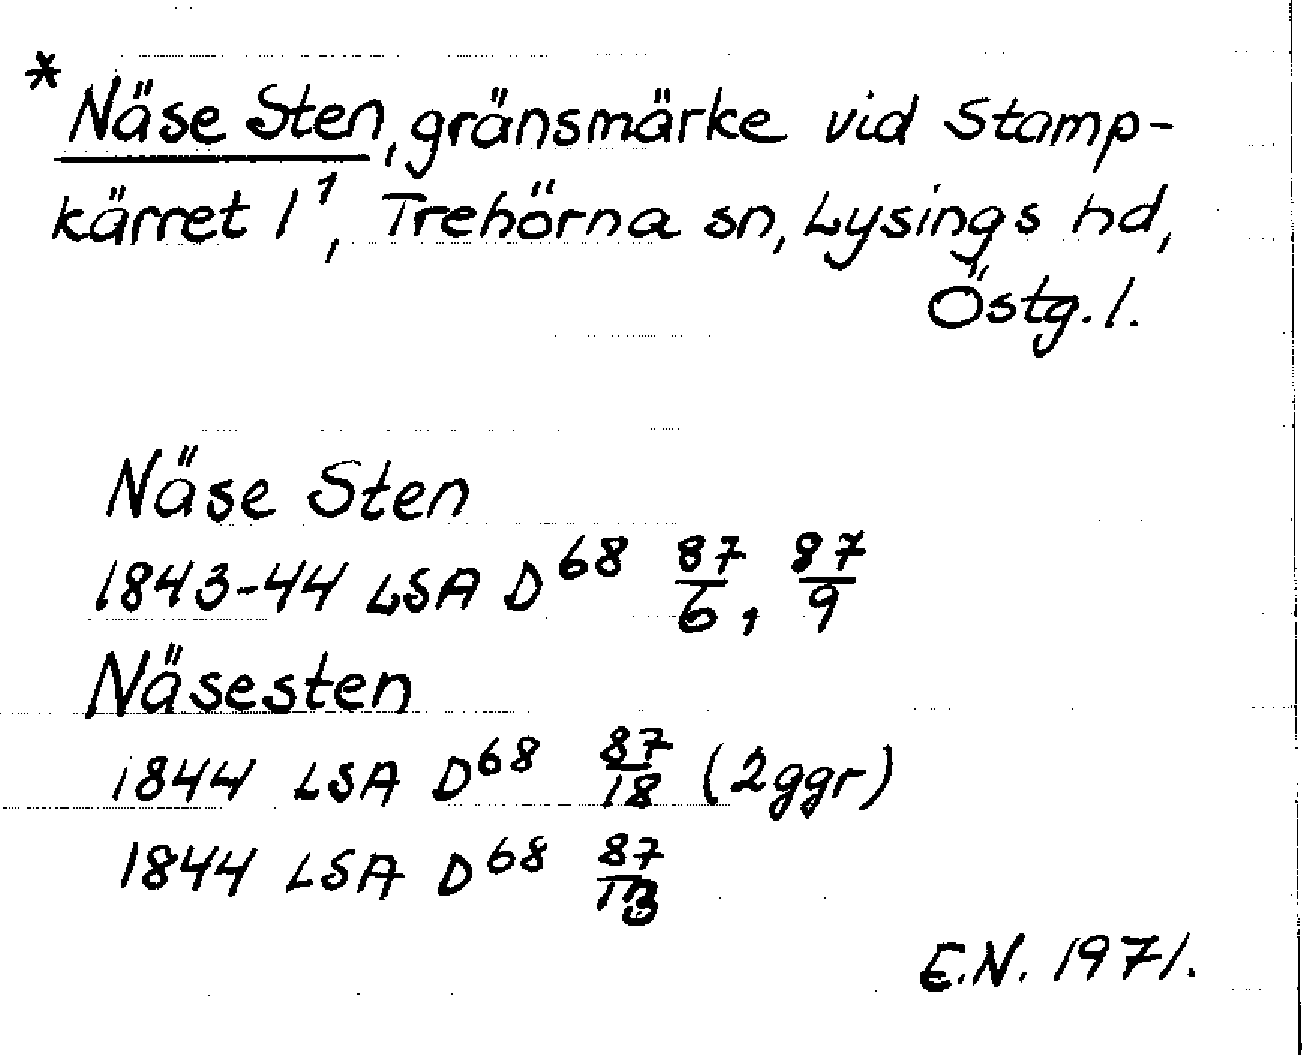 * Näse Sten, gränsmärke vid Stamp-
kärret 1¹, Trehörna sn, Lysings hd,
Östg. l.
Näse Sten
1843-44 LSA D⁶⁸ 87/6, 87/9
Näsesten
1844 LSA D⁶⁸ 87/18 (2ggr)
1844 LSA D⁶⁸ 87/13
E.N. 1971.